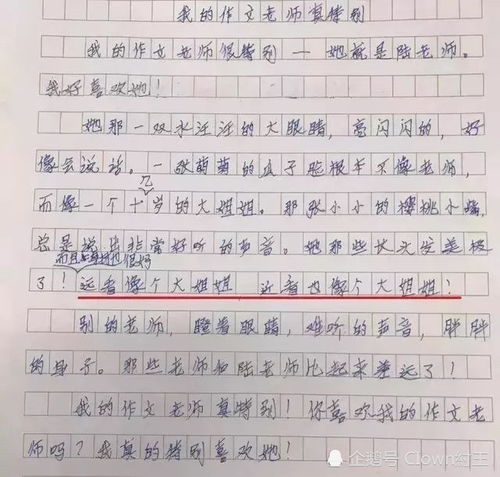 我的作文老师真特别
我的作文老师很特别——她就是陆老师。
我好喜欢她！
她那一双水汪汪的大眼睛，亮闪闪的，好
像会说话。一张萌萌的瓜子脸根本不像老师，
而像一个十几岁的大姐姐。那张小小的樱桃小嘴，
总是说出非常好听的声音。她那些长头发美极
了！而且身材也很好远看像个大姐姐 近看也像个大姐姐！
别的老师，瞪着眼睛，难听的声音，胖胖
的身子。那些老师和陆老师比起来差远了！
我的作文老师真特别！你喜欢我的作文老
师吗？我真的特别喜欢她！
企鹅号 Clown幻王